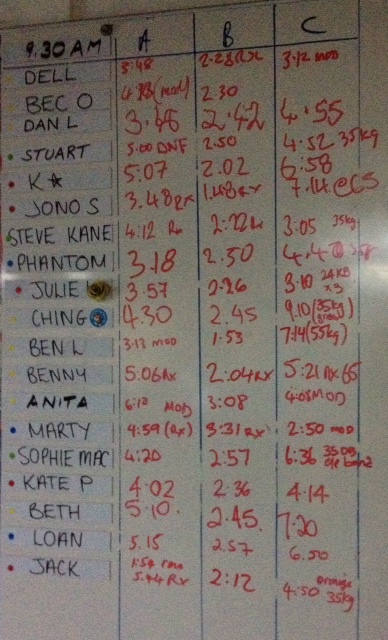 9.30 AM A B C
DELL 3:48 2:28 RX 3:12 MOD
BEC O (mod) 2.30
DAN L 2.42 4.55
STUART 5:00 DNF 2.50 4.52 35kg
K 5:07 2.02 6:58
JONO S 3.48 RX 1.48 RX 7.14 @65
STEVE KANE 4:12 Rx 3:05 35kg
PHANTOM 3.18 2.50
JULIE 3:57 2:26 3:10 24KB x3
CHING 4.30 2.45 9.10 (35kg
BEN L 3:13 MOD 1:53 7:14 (55kg)
BENNY 5:06 Rx 2:04 RX 5:21 RX 65
ANITA 6:12 MOD 3:08 4:08 MOD
MARTY 4:59 (Rx) 3:31 RX 2:50 MOD
SOPHIE MAC 4:20 2:57 6:36
KATE P 4:02 2:36 4:14
BETH 5:10. 2:45. 7:20
LOAN 5.15 2.57 6.50
JACK 5:44 RX 2:12 4:50 orange 35kg